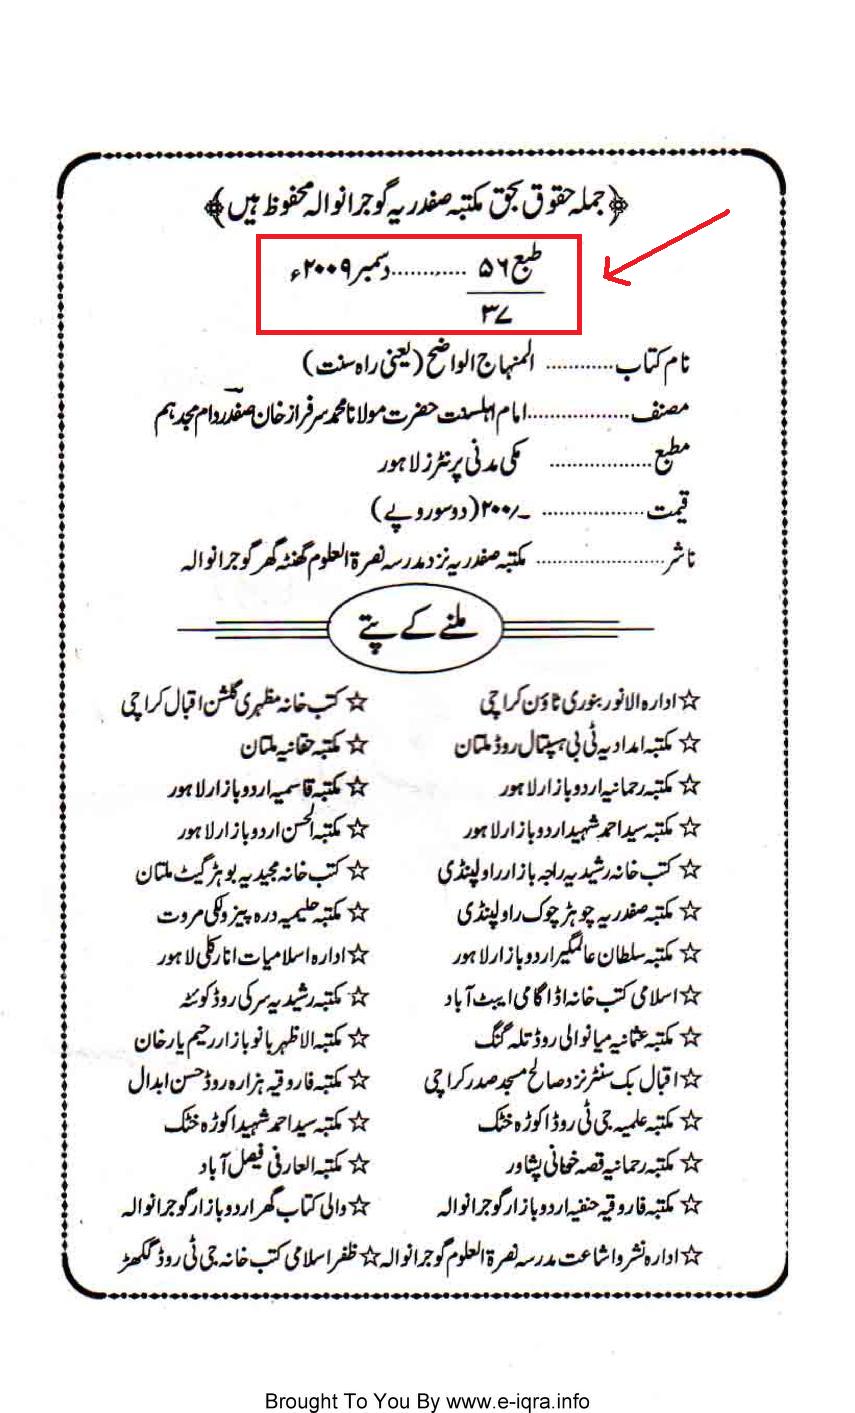 ﴿جملہ حقوق بحق مکتبہ صفدریہ گوجرانوالہ محفوظ ہیں﴾
طبع ۵۶ ............ دسمبر ۲۰۰۹ء
۳۷
نام کتاب ............ المنہاج الواضح (یعنی راہ سنت)
مصنف ................. امام اہلسنت حضرت مولانا محمد سرفراز خان صفدر دام مجدہم
مطبع .................. مکی مدنی پرنٹرز لاہور
قیمت .................. ۲۰۰/- (دو سو روپے)
ناشر ....................... مکتبہ صفدریہ نزد مدرسہ نصرۃ العلوم گھنٹہ گھر گوجرانوالہ
ملنے کے پتے
☆ ادارہ الانور بنوری ٹاؤن کراچی ☆ کتب خانہ مظہری گلشن اقبال کراچی
☆ مکتبہ امدادیہ ٹی بی ہسپتال روڈ ملتان ☆ مکتبہ حقانیہ ملتان
☆ مکتبہ رحمانیہ اردو بازار لاہور ☆ مکتبہ قاسمیہ اردو بازار لاہور
☆ مکتبہ سید احمد شہید اردو بازار لاہور ☆ مکتبہ الحسن اردو بازار لاہور
☆ کتب خانہ رشیدیہ راجہ بازار راولپنڈی ☆ کتب خانہ مجیدیہ بوہڑ گیٹ ملتان
☆ مکتبہ صفدریہ چوہڑ چوک راولپنڈی ☆ مکتبہ حلیمیہ درہ پیزو لکی مروت
☆ مکتبہ سلطان عالمگیر اردو بازار لاہور ☆ ادارہ اسلامیات انارکلی لاہور
☆ اسلامی کتب خانہ اڈا گامی ایبٹ آباد ☆ مکتبہ رشیدیہ سرکی روڈ کوئٹہ
☆ مکتبہ عثمانیہ میانوالی روڈ تلہ گنگ ☆ مکتبہ الاظہر بانو بازار رحیم یار خان
☆ اقبال بک سنٹر نزد صالح مسجد صدر کراچی ☆ مکتبہ فاروقیہ ہزارہ روڈ حسن ابدال
☆ مکتبہ علمیہ جی ٹی روڈ اکوڑہ خٹک ☆ مکتبہ سید احمد شہید اکوڑہ خٹک
☆ مکتبہ رحمانیہ قصہ خوانی پشاور ☆ مکتبہ العارفی فیصل آباد
☆ مکتبہ فاروقیہ حنفیہ اردو بازار گوجرانوالہ ☆ والی کتاب گھر اردو بازار گوجرانوالہ
☆ ادارہ نشر و اشاعت مدرسہ نصرۃ العلوم گوجرانوالہ ☆ ظفر اسلامی کتب خانہ جی ٹی روڈ گکھڑ
Brought To You By www.e-iqra.info